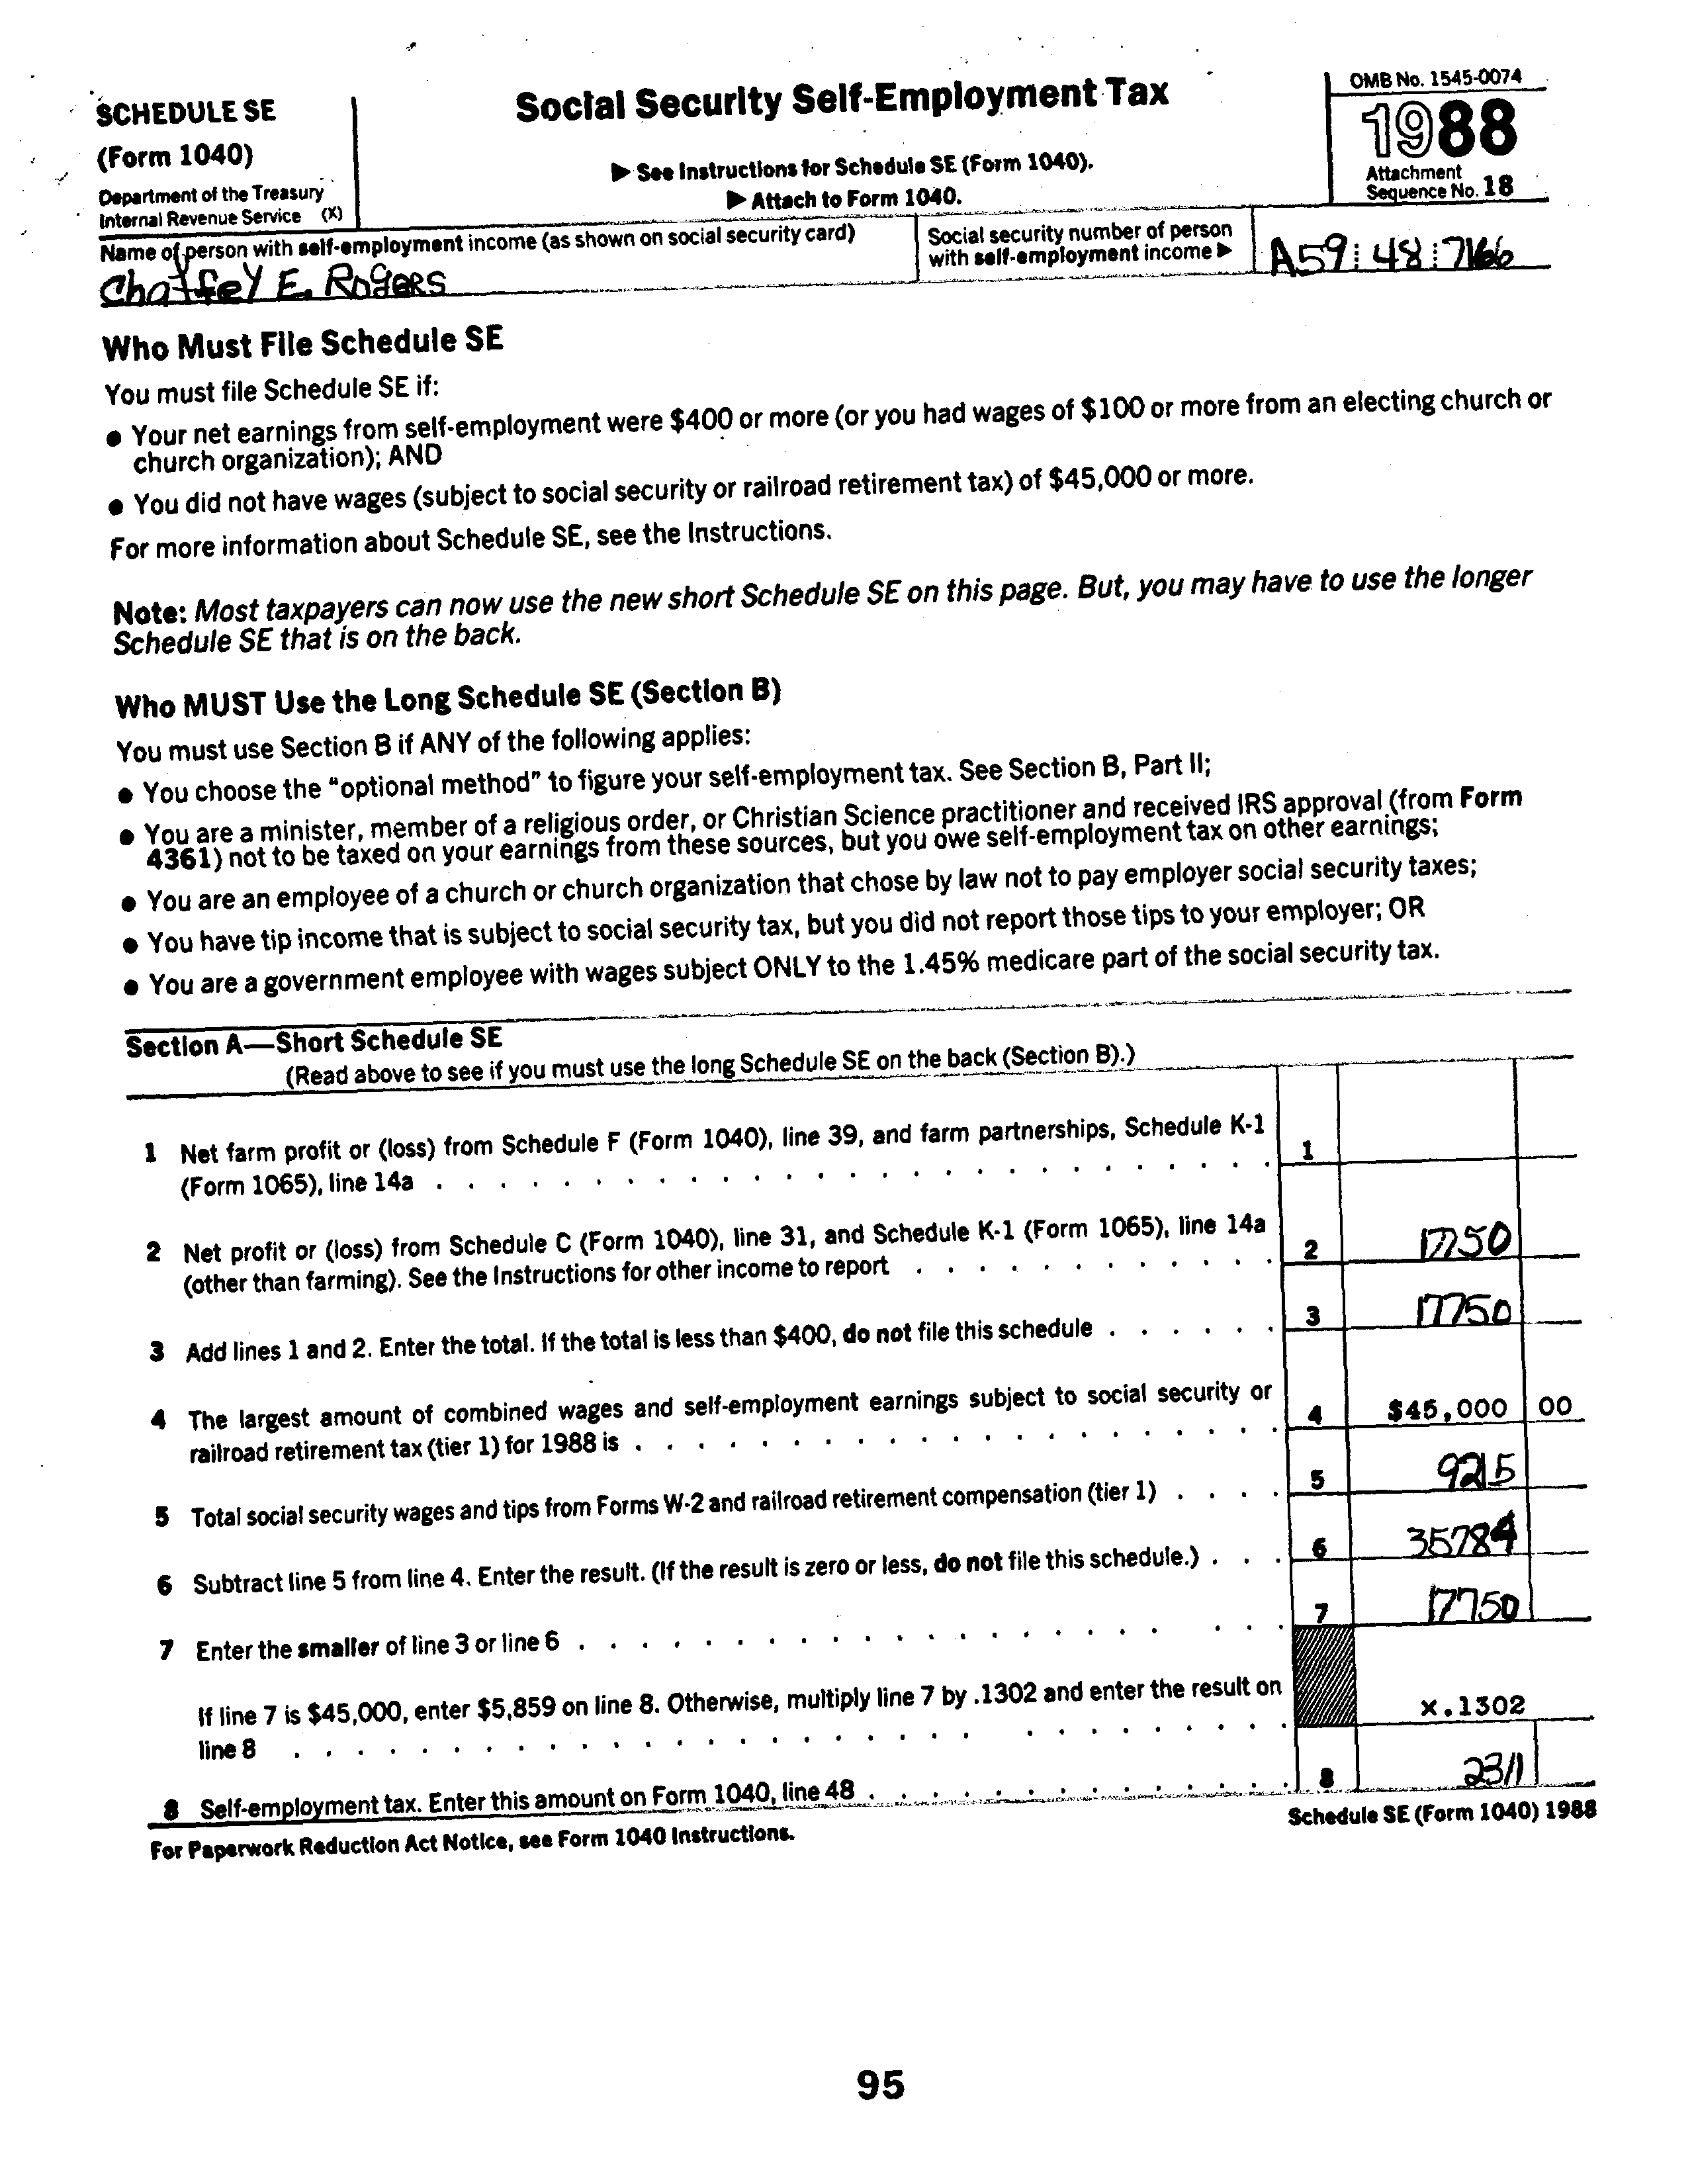 SCHEDULE SE
(Form 1040)
Department of the Treasury
Internal Revenue Service (X)
Social Security Self-Employment Tax
▶ See Instructions for Schedule SE (Form 1040).
▶ Attach to Form 1040.
OMB No. 1545-0074
1988
Attachment
Sequence No. 18
Name of person with self-employment income (as shown on social security card)
Chatfey E. Rogers
Social security number of person
with self-employment income ▶
A59 48 7166
Who Must File Schedule SE
You must file Schedule SE if:
● Your net earnings from self-employment were $400 or more (or you had wages of $100 or more from an electing church or
church organization); AND
● You did not have wages (subject to social security or railroad retirement tax) of $45,000 or more.
For more information about Schedule SE, see the Instructions.
Note: Most taxpayers can now use the new short Schedule SE on this page. But, you may have to use the longer
Schedule SE that is on the back.
Who MUST Use the Long Schedule SE (Section B)
You must use Section B if ANY of the following applies:
● You choose the "optional method" to figure your self-employment tax. See Section B, Part II;
● You are a minister, member of a religious order, or Christian Science practitioner and received IRS approval (from Form
4361) not to be taxed on your earnings from these sources, but you owe self-employment tax on other earnings;
● You are an employee of a church or church organization that chose by law not to pay employer social security taxes;
● You have tip income that is subject to social security tax, but you did not report those tips to your employer; OR
● You are a government employee with wages subject ONLY to the 1.45% medicare part of the social security tax.
Section A—Short Schedule SE
(Read above to see if you must use the long Schedule SE on the back (Section B).)
1 Net farm profit or (loss) from Schedule F (Form 1040), line 39, and farm partnerships, Schedule K-1
(Form 1065), line 14a . . . . . . . . . . 1
2 Net profit or (loss) from Schedule C (Form 1040), line 31, and Schedule K-1 (Form 1065), line 14a
(other than farming). See the Instructions for other income to report . . . . . . . . . . 2 17750
3 Add lines 1 and 2. Enter the total. If the total is less than $400, do not file this schedule . . . . . . 3 17750
4 The largest amount of combined wages and self-employment earnings subject to social security or
railroad retirement tax (tier 1) for 1988 is . . . . . . . . . . 4 $45,000 00
5 Total social security wages and tips from Forms W-2 and railroad retirement compensation (tier 1) . . . . 5 9215
6 Subtract line 5 from line 4. Enter the result. (If the result is zero or less, do not file this schedule.) . . . 6 35784
7 Enter the smaller of line 3 or line 6 . . . . . . . . . . 7 17750
If line 7 is $45,000, enter $5,859 on line 8. Otherwise, multiply line 7 by .1302 and enter the result on
line 8 . . . . . . . . . . x.1302
8 Self-employment tax. Enter this amount on Form 1040, line 48 . . . . . . . . . . 8 2311
For Paperwork Reduction Act Notice, see Form 1040 Instructions.
Schedule SE (Form 1040) 1988
95